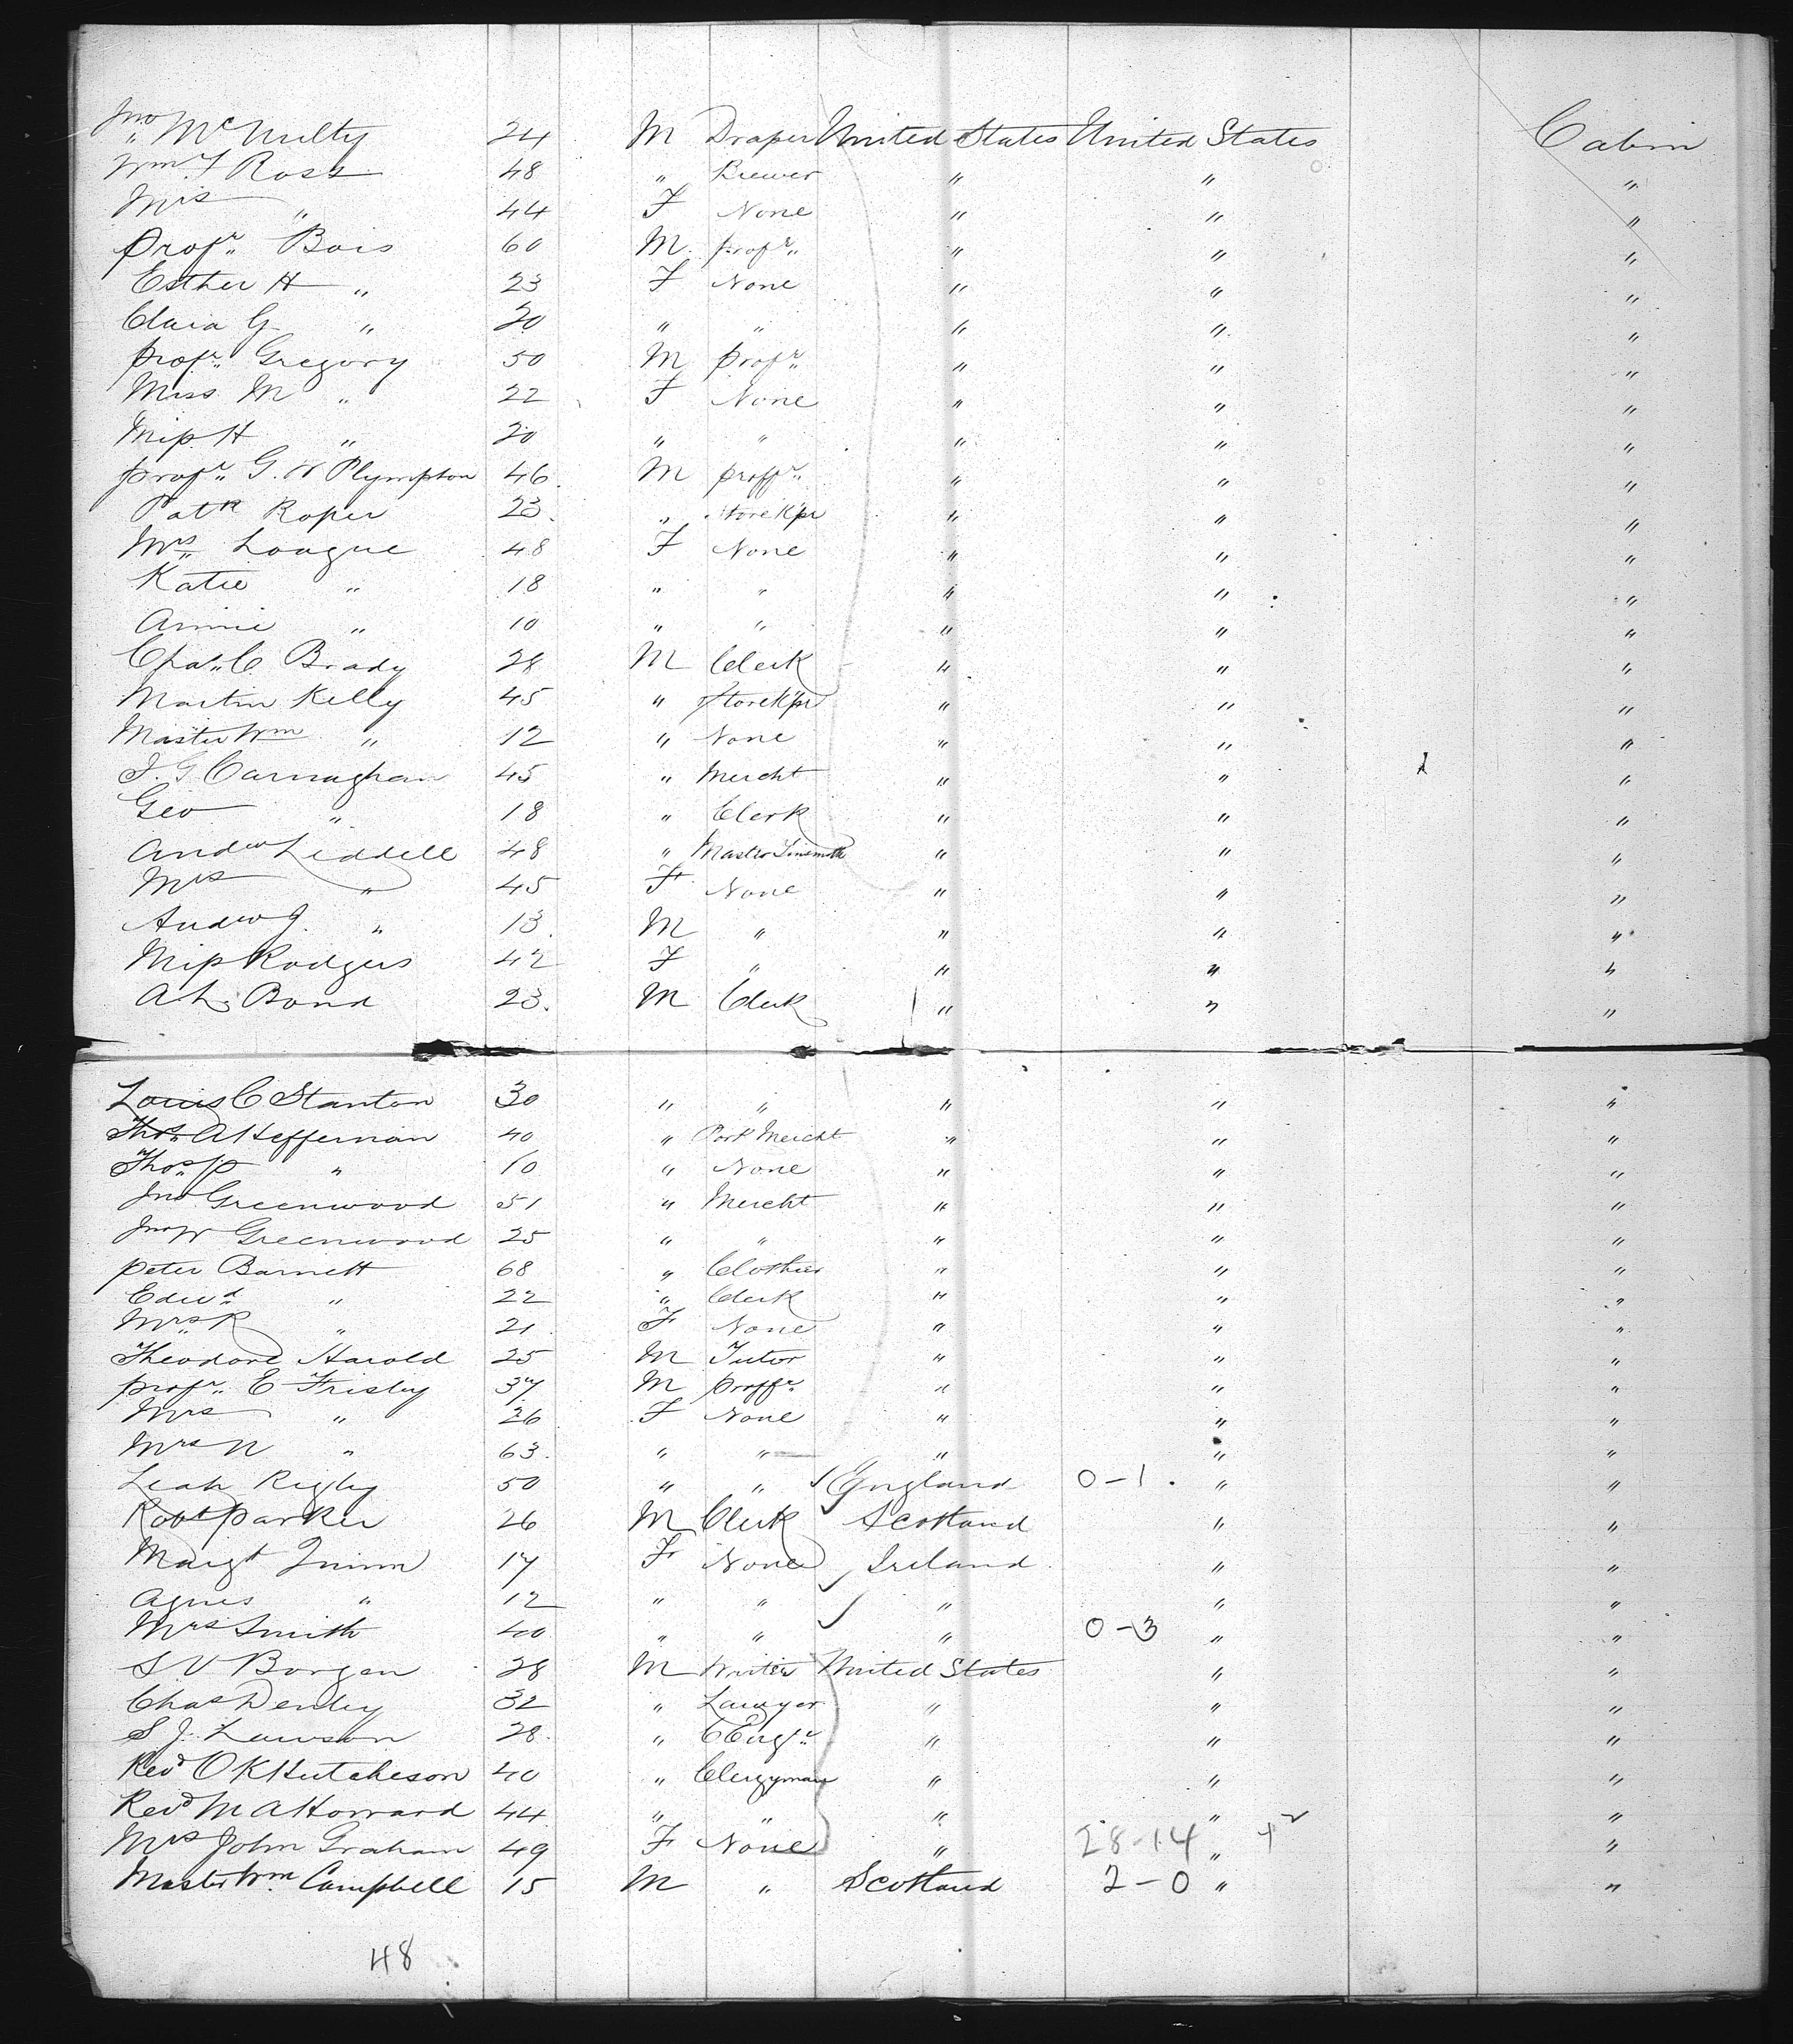 Jno McNulty 24 M Draper United States United States Cabin
Wm. F Ross 48 " Brewer " " "
Mrs " 44 F None " " "
Profr. Bois 60 M. profr. " " "
Esther H " 23 F None " " "
Clara G " 20 " " " " "
profr. Gregory 50 M profr. " " "
Miss M " 22 F None " " "
Miss H " 20 " " " " "
profr. G. W Plympton 46 M proffr. " " "
Patk Roper 23. " Storek'pr " " "
Mrs Loague 48 F None " " "
Katie " 18 " " " " "
Annie " 10 " " " " "
Chas. C Brady 28 M Clerk " " "
Martin Kelly 45 " Storek'pr " " "
Master Wm " 12 " None " " "
J. G Carnaghan 45 " Mercht " " "
Geo " 18 " Clerk " " "
Andw Liddell 48 " Master Tinsmith " " "
Mrs " 45 F None " " "
Andw J. " 13. M " " " "
Miss Rodgers 42 F " " " "
A. L. Bond 23. M Clerk " " "
Louis C Stanton 30 " " " " "
Thos. A Heffernan 40 " Pork Mercht " " "
Thos. P " 10 " None " " "
Jno Greenwood 51 " Mercht " " "
Jno W Greenwood 25 " " " " "
Peter Barnett 68 " Clothier " " "
Edwd. " 22 " Clerk " " "
Mrs R " 21. F None " " "
Theodore Harold 25 M Tutor " " "
profr. E Frisby 37. M proffr. " " "
Mrs " 26 F None " " "
Mrs N " 63. " " " " "
Leah Rigby 50 " " England 0-1. " "
Robt Parker 26 M Clerk Scotland " "
Margt Quinn 17 F None Ireland " "
Agnes " 12 " " " " "
Mrs Smith 40 " " " 0-3 " "
S V Borgen 28 M Writer United States " "
Chas Denley 32 " Lawyer " " "
S J. Lawson 28. " C Engr. " " "
Revd O K Hutcheson 40 " Clergyman " " "
Revd M A Horrard 44 " " " " "
Mrs John Graham 49 F None " 28-14 " "
Master Wm. Campbell 15 M " Scotland 2-0 " "
48